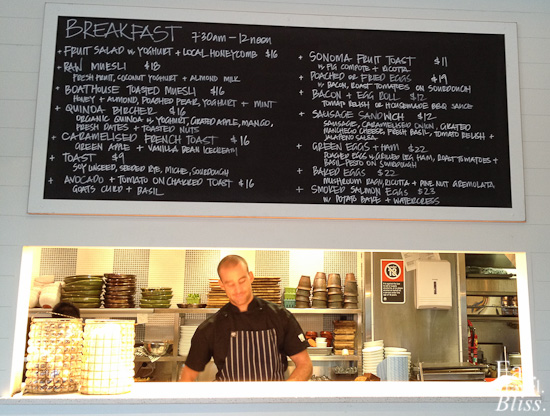 BREAKFAST 7:30am - 12 noon
+ FRUIT SALAD w YOGHURT + LOCAL HONEYCOMB $16
+ RAW MUESLI $18
FRESH FRUIT, COCONUT YOGHURT + ALMOND MILK
+ BOATHOUSE TOASTED MUESLI $16
HONEY + ALMOND, POACHED PEAR, YOGHURT + MINT
+ QUINOA BIRCHER $16
ORGANIC QUINOA w YOGHURT, GRATED APPLE, MANGO,
FRESH DATES + TOASTED NUTS
+ CARAMELISED FRENCH TOAST $16
GREEN APPLE + VANILLA BEAN ICECREAM
+ TOAST $9
SOY LINSEED, SEEDED RYE, MICHE, SOURDOUGH
+ AVOCADO + TOMATO ON CHARRED TOAST $16
GOATS CURD + BASIL
+ SONOMA FRUIT TOAST $11
w FIG COMPOTE + RICOTTA
+ POACHED or FRIED EGGS $19
w BACON, ROAST TOMATOES ON SOURDOUGH
+ BACON + EGG ROLL $12
TOMATO RELISH or HOUSEMADE BBQ SAUCE
+ SAUSAGE SANDWICH $12
SAUSAGE, CARAMELISED ONION, GRATED
MANCHEGO CHEESE, FRESH BASIL, TOMATO RELISH +
JALAPENO SALSA
+ GREEN EGGS + HAM $22
POACHED EGGS w LEG HAM, ROAST TOMATOES +
BASIL PESTO ON SOURDOUGH
+ BAKED EGGS $22
MUSHROOM RAGU, RICOTTA + PINE NUT GREMOLATA
+ SMOKED SALMON EGGS $23
w POTATO + WATERCRESS
Eat.
Bliss.